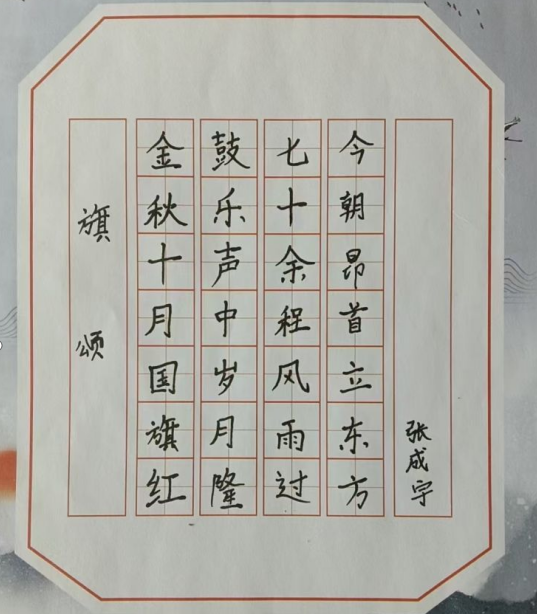 旗颂
金秋十月国旗红
鼓乐声中岁月隆
七十余程风雨过
今朝昂首立东方
张成宇